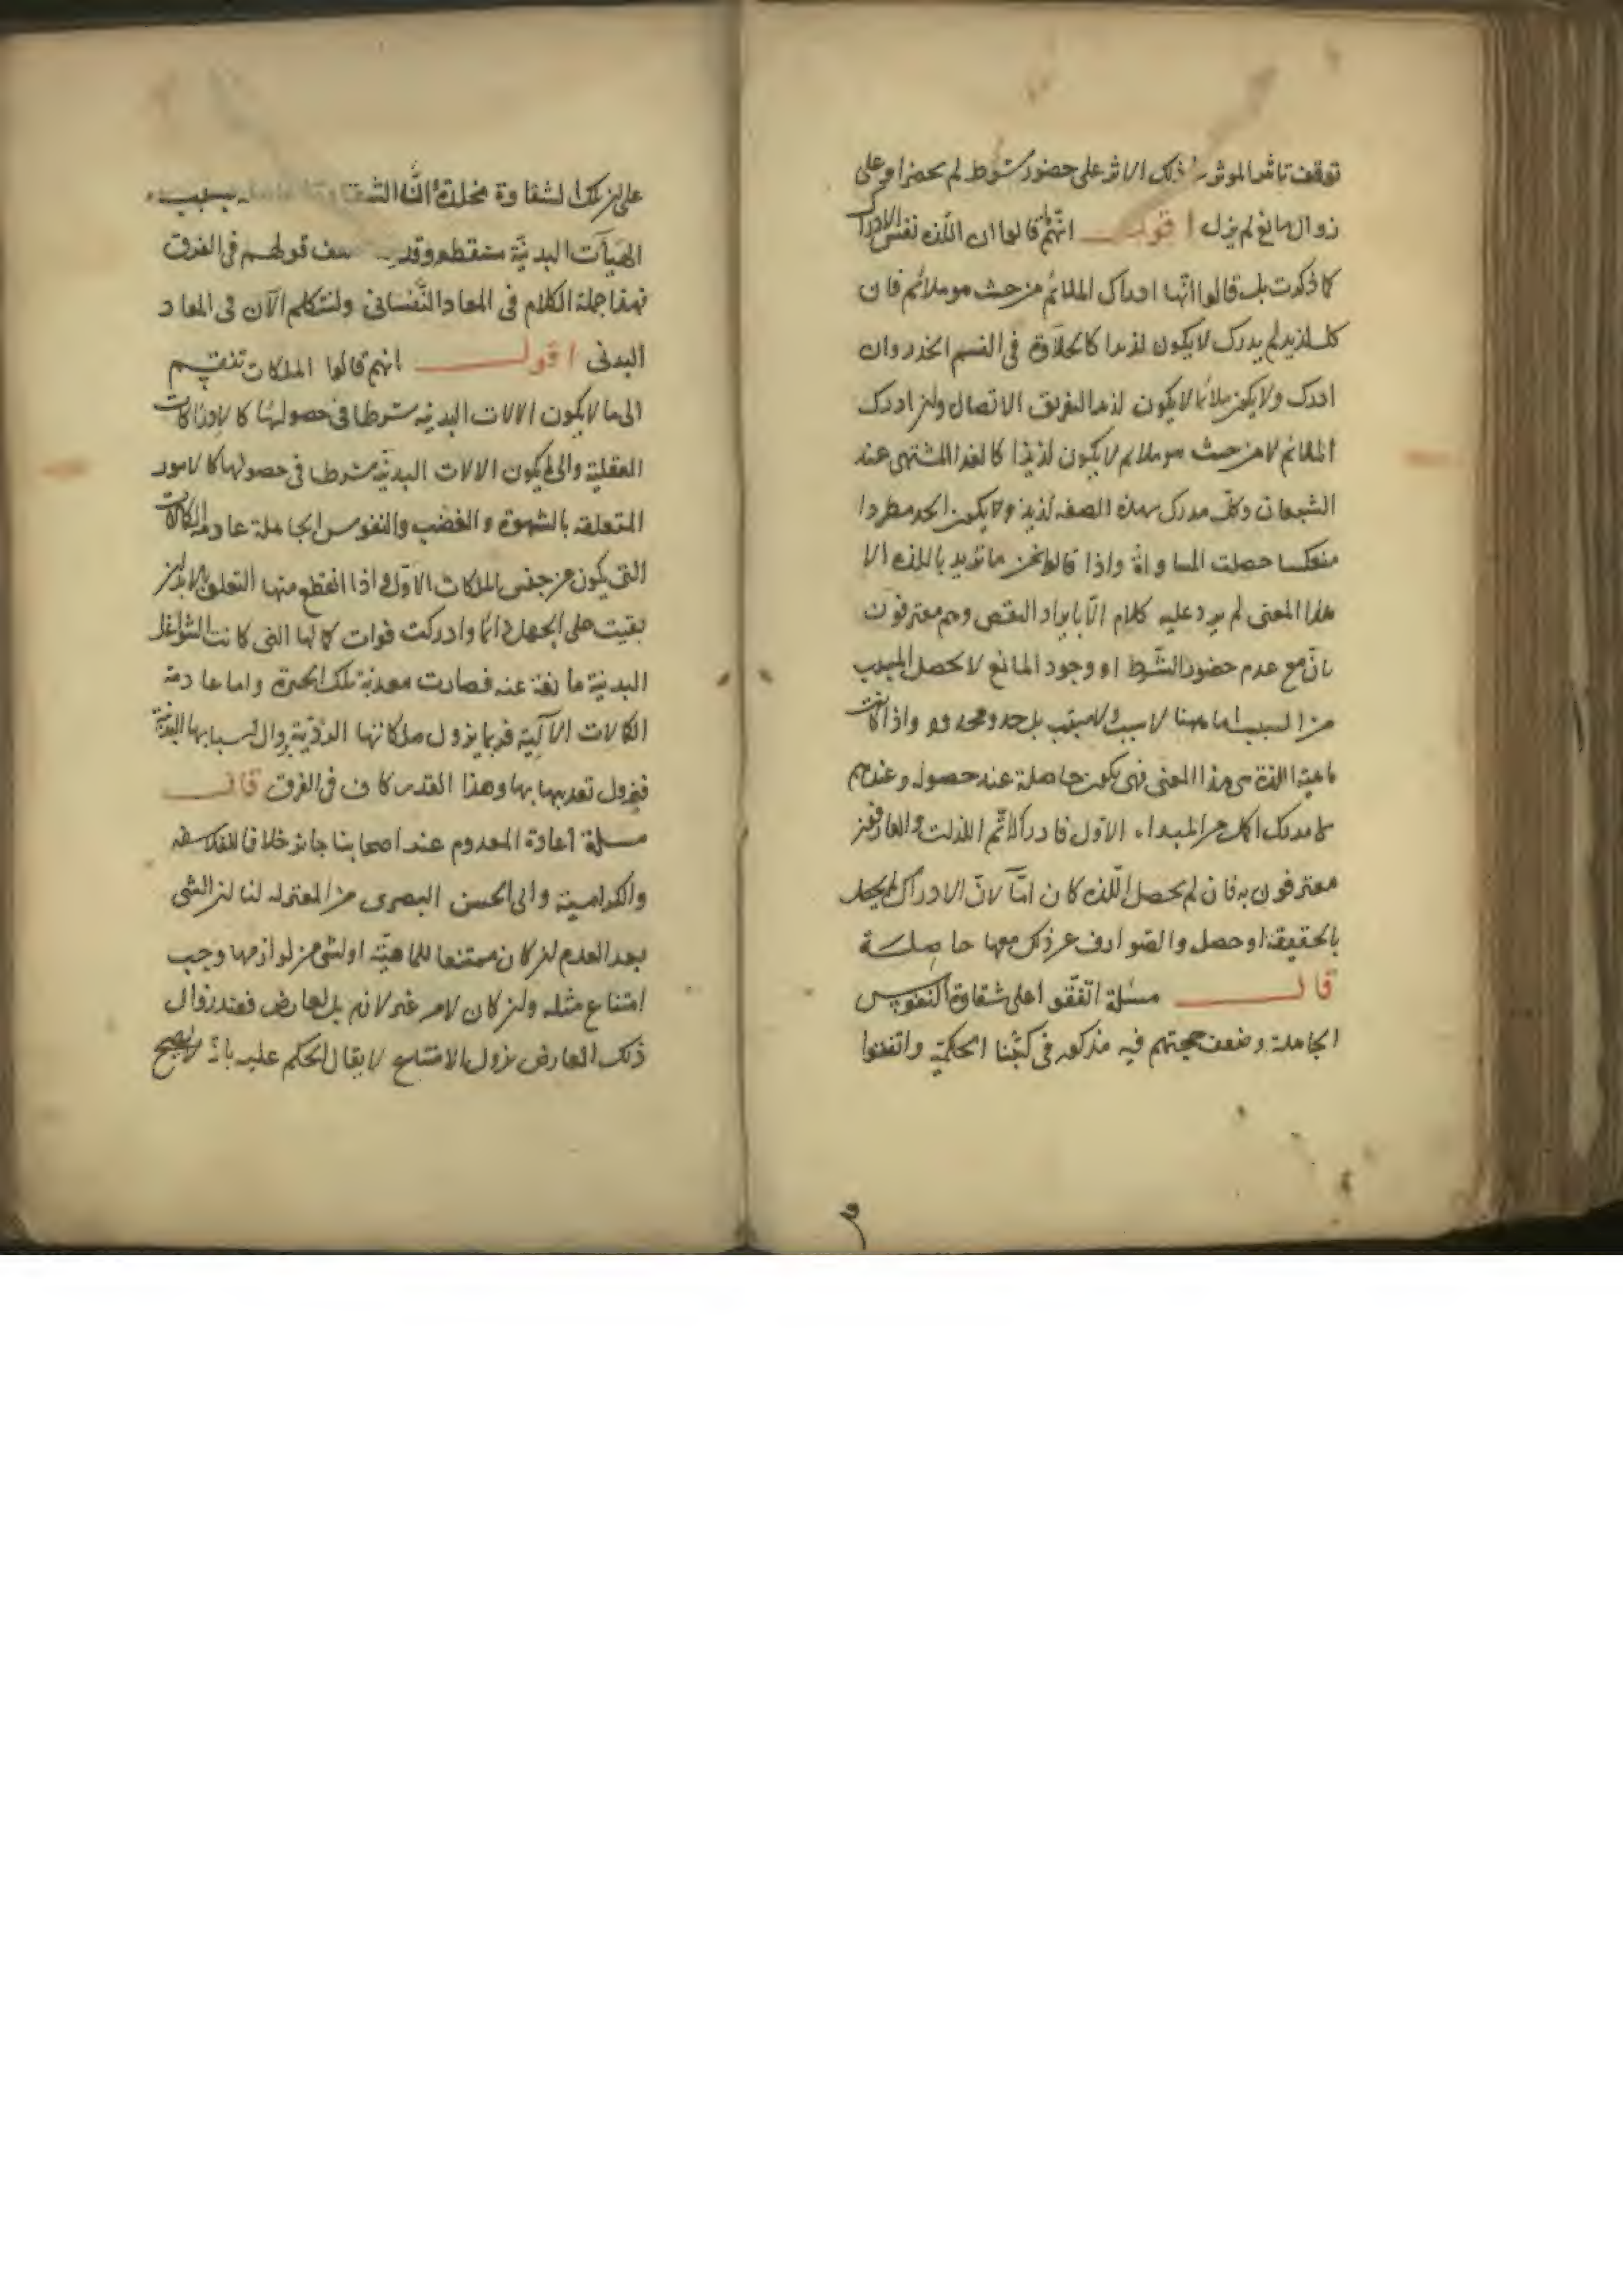 توقف تاثير الموثر ذلك الاثر على حضور شرط لم يحضر او على
زوال مانع لم يزل اقول انهم قالوا ان اللذه نفس الادراك
كما ذكرت بل قالوا انها ادراك الملائم من حيث هو ملائم فان
كل لذيذ لم يدرك لا يكون لذيذا كالحلاوة فى الفم الخدر وان
ادرك ولا يكون ملائما لا يكون لذيذا كتفريق الاتصال وان ادرك
الملائم لا من حيث هو ملائم لا يكون لذيذا كالغذاء المشتهى عند
الشبعان وكل مدرك بهذه الصفه لذيذ ولا يكون الحد مطردا
منعكسا حصلت المساواة واذا قالوا نحن ما نريد باللذه الا
هذا المعنى لم يرد عليه كلام الا بايراد النقض وهم معترفون
بان مع عدم حضور الشرط او وجود المانع لا يحصل المسبب
من السبب اما ههنا لا سبب ولا مسبب بل حد ومحدود واذا كانت
ماهية اللذة هى هذا المعنى فهى يكون حاصلة عند حصوله وعندهم
لا مدرك اكمل من المبداء الاول فادراكه اتم اللذات والعارفون
معترفون به فان لم يحصل اللذه كان اما لان الادراك لم يحصل
بالحقيقة او حصل والصوارف عن ذلك معها حاصلة
قال مسئلة اتفقوا على شقاوة النفوس
الجاهلة وضعف حجتهم فيه مذكور فى كتبنا الحكمية واتفقوا
على ان تلك الشقاوة مخلدة الا ان الشقاوة الحاصله بسبب
الهيآت البدنية منقطعه وقد ضعف قولهم فى الفرق
فهذا جملة الكلام فى المعاد النفسانى ولنتكلم الآن فى المعاد
البدنى اقول انهم قالوا الملكات تنقسم
الى ما لا يكون الالات البدنيه شرطا فى حصولها كالادراكات
العقلية والى ما يكون الالات البدنية شرطا فى حصولها كالامور
المتعلقه بالشهوة والغضب والنفوس الجاهلة عادمة الكمالات
التى يكون من جنس الملكات الاول واذا انقطع منها التعلق بالابدان
بقيت على الجهل دائما وادركت فوات كمالها التى كانت الشواغل
البدنية مانعة عنه فصارت معذبة بتلك الحسرة واما عادمة
الكمالات الآلية فربما يزول ملكاتها الردية بزوال اسبابها البدنية
فيزول تعذيبها بها وهذا القدر كاف فى الفرق قال
مسئلة اعادة المعدوم عند اصحابنا جائز خلافا للفلاسفه
والكرامية وابى الحسن البصرى من المعتزله لنا ان الشى
بعد العدم ان كان ممتنعا للماهية او لشى من لوازمها وجب
امتناع مثله وان كان لامر غير لازم بل لعارض فعند زوال
ذلك العارض يزول الامتناع لا يقال الحكم عليه بانه لا يصح